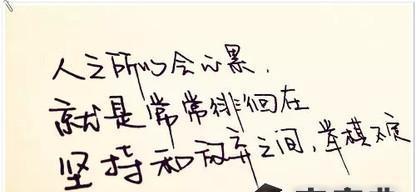 人之所以会心累，
就是常常徘徊在
坚持和放弃之间，举棋不定